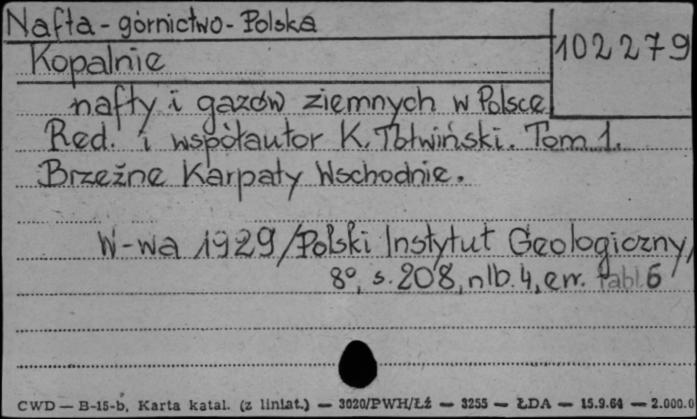 Nafta - górnictwo - Polska
102279
Kopalnie
nafty i gazów ziemnych w Polsce
Red. i współautor K. Tołwiński. Tom 1.
Brzeżne Karpaty Wschodnie.
W-wa 1929/Polski Instytut Geologiczny/
8°, s. 208, nlb. 4, err. tabl. 6
CWD — B-15-b, Karta katal. (z liniat.) — 3020/PWH/Łź — 3255 — ŁDA — 15.9.64 — 2.000.0